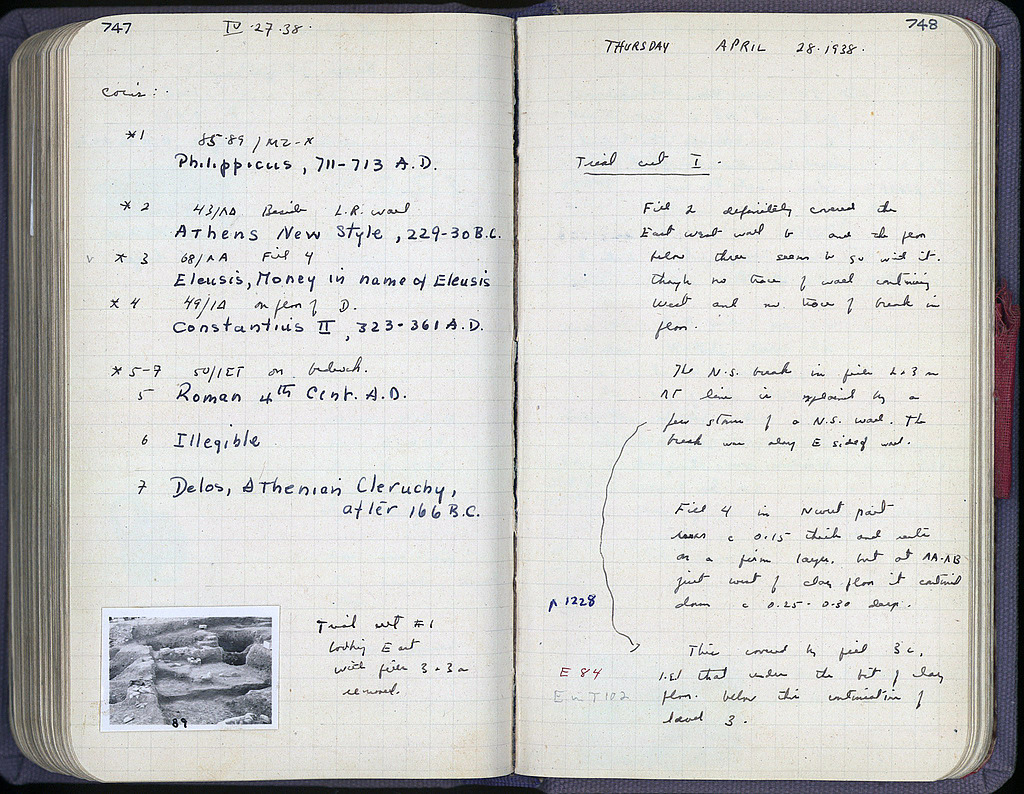 747
IV·27·38·
Coins:
*1 85·89 / MZ-X
Philippicus, 711-713 A.D.
*2 43/ΛΔ Beside L.R. wall
Athens New Style, 229-30 B.C.
v *3 68/ΛA Fill 4
Eleusis, Money in name of Eleusis
*4 49/ΙΔ on floor of D.
Constantius II, 323-361 A.D.
*5-7 50/ΙΕΤ on bedrock.
5 Roman 4th Cent. A.D.
6 Illegible
7 Delos, Athenian Cleruchy,
after 166 B.C.
89
Trial cut #1
looking East
with fills 3 + 3a
removed.
748
THURSDAY APRIL 28·1938·
Trial cut I.
Fill 2 definitely covered the
East west wall b and the floor
below three seems to go with it.
though no trace of wall continuing
West and no trace of break in
floor.
The N.S. break in fills 2+3 in
line is explained by a
few stones of a N.S. wall. The
break was along E side of wall.
Fill 4 in N west part
c 0.15 thick and rests
on a firm layer, but at ΛA-ΛB
just west of clay floor it continued
down c 0.25-0.30 deep.
Λ 1228
This covered by fill 3c,
E 84 i.e. that under the bit of clay
E in T 102 floor. below the continuation of
level 3.